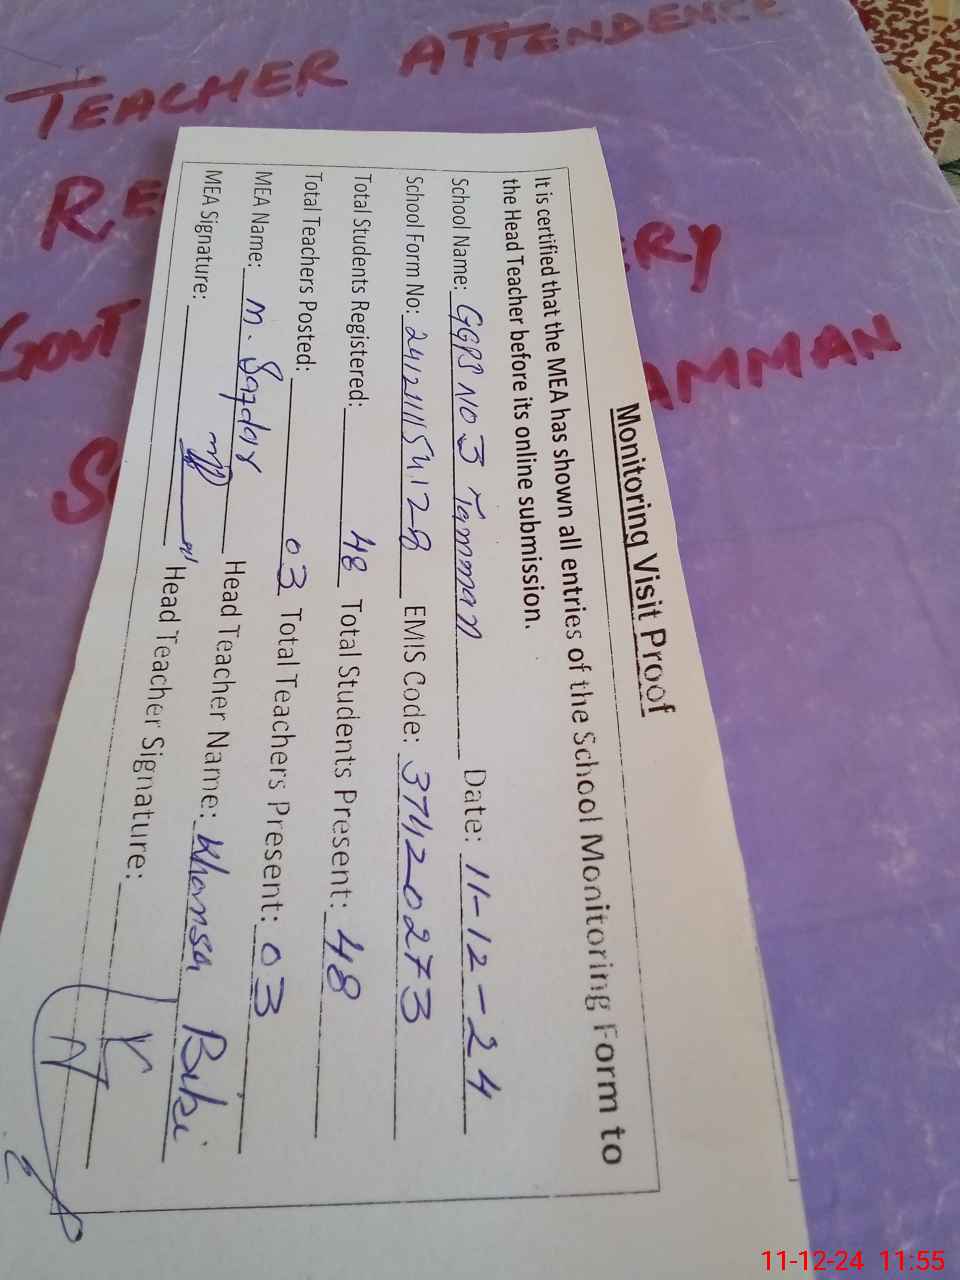 TEACHER ATTENDENCE
RE RY
GOVT AMMAN
S
Monitoring Visit Proof
It is certified that the MEA has shown all entries of the School Monitoring Form to
the Head Teacher before its online submission.
School Name: GGPS NO 3 Tamman Date: 11-12-24
School Form No: EMIS Code: 37120273
Total Students Registered: 48 Total Students Present: 48
Total Teachers Posted: 03 Total Teachers Present: 03
MEA Name: M. Safdar Head Teacher Name: Khansa Bibi
MEA Signature: Head Teacher Signature:
11-12-24 11:55